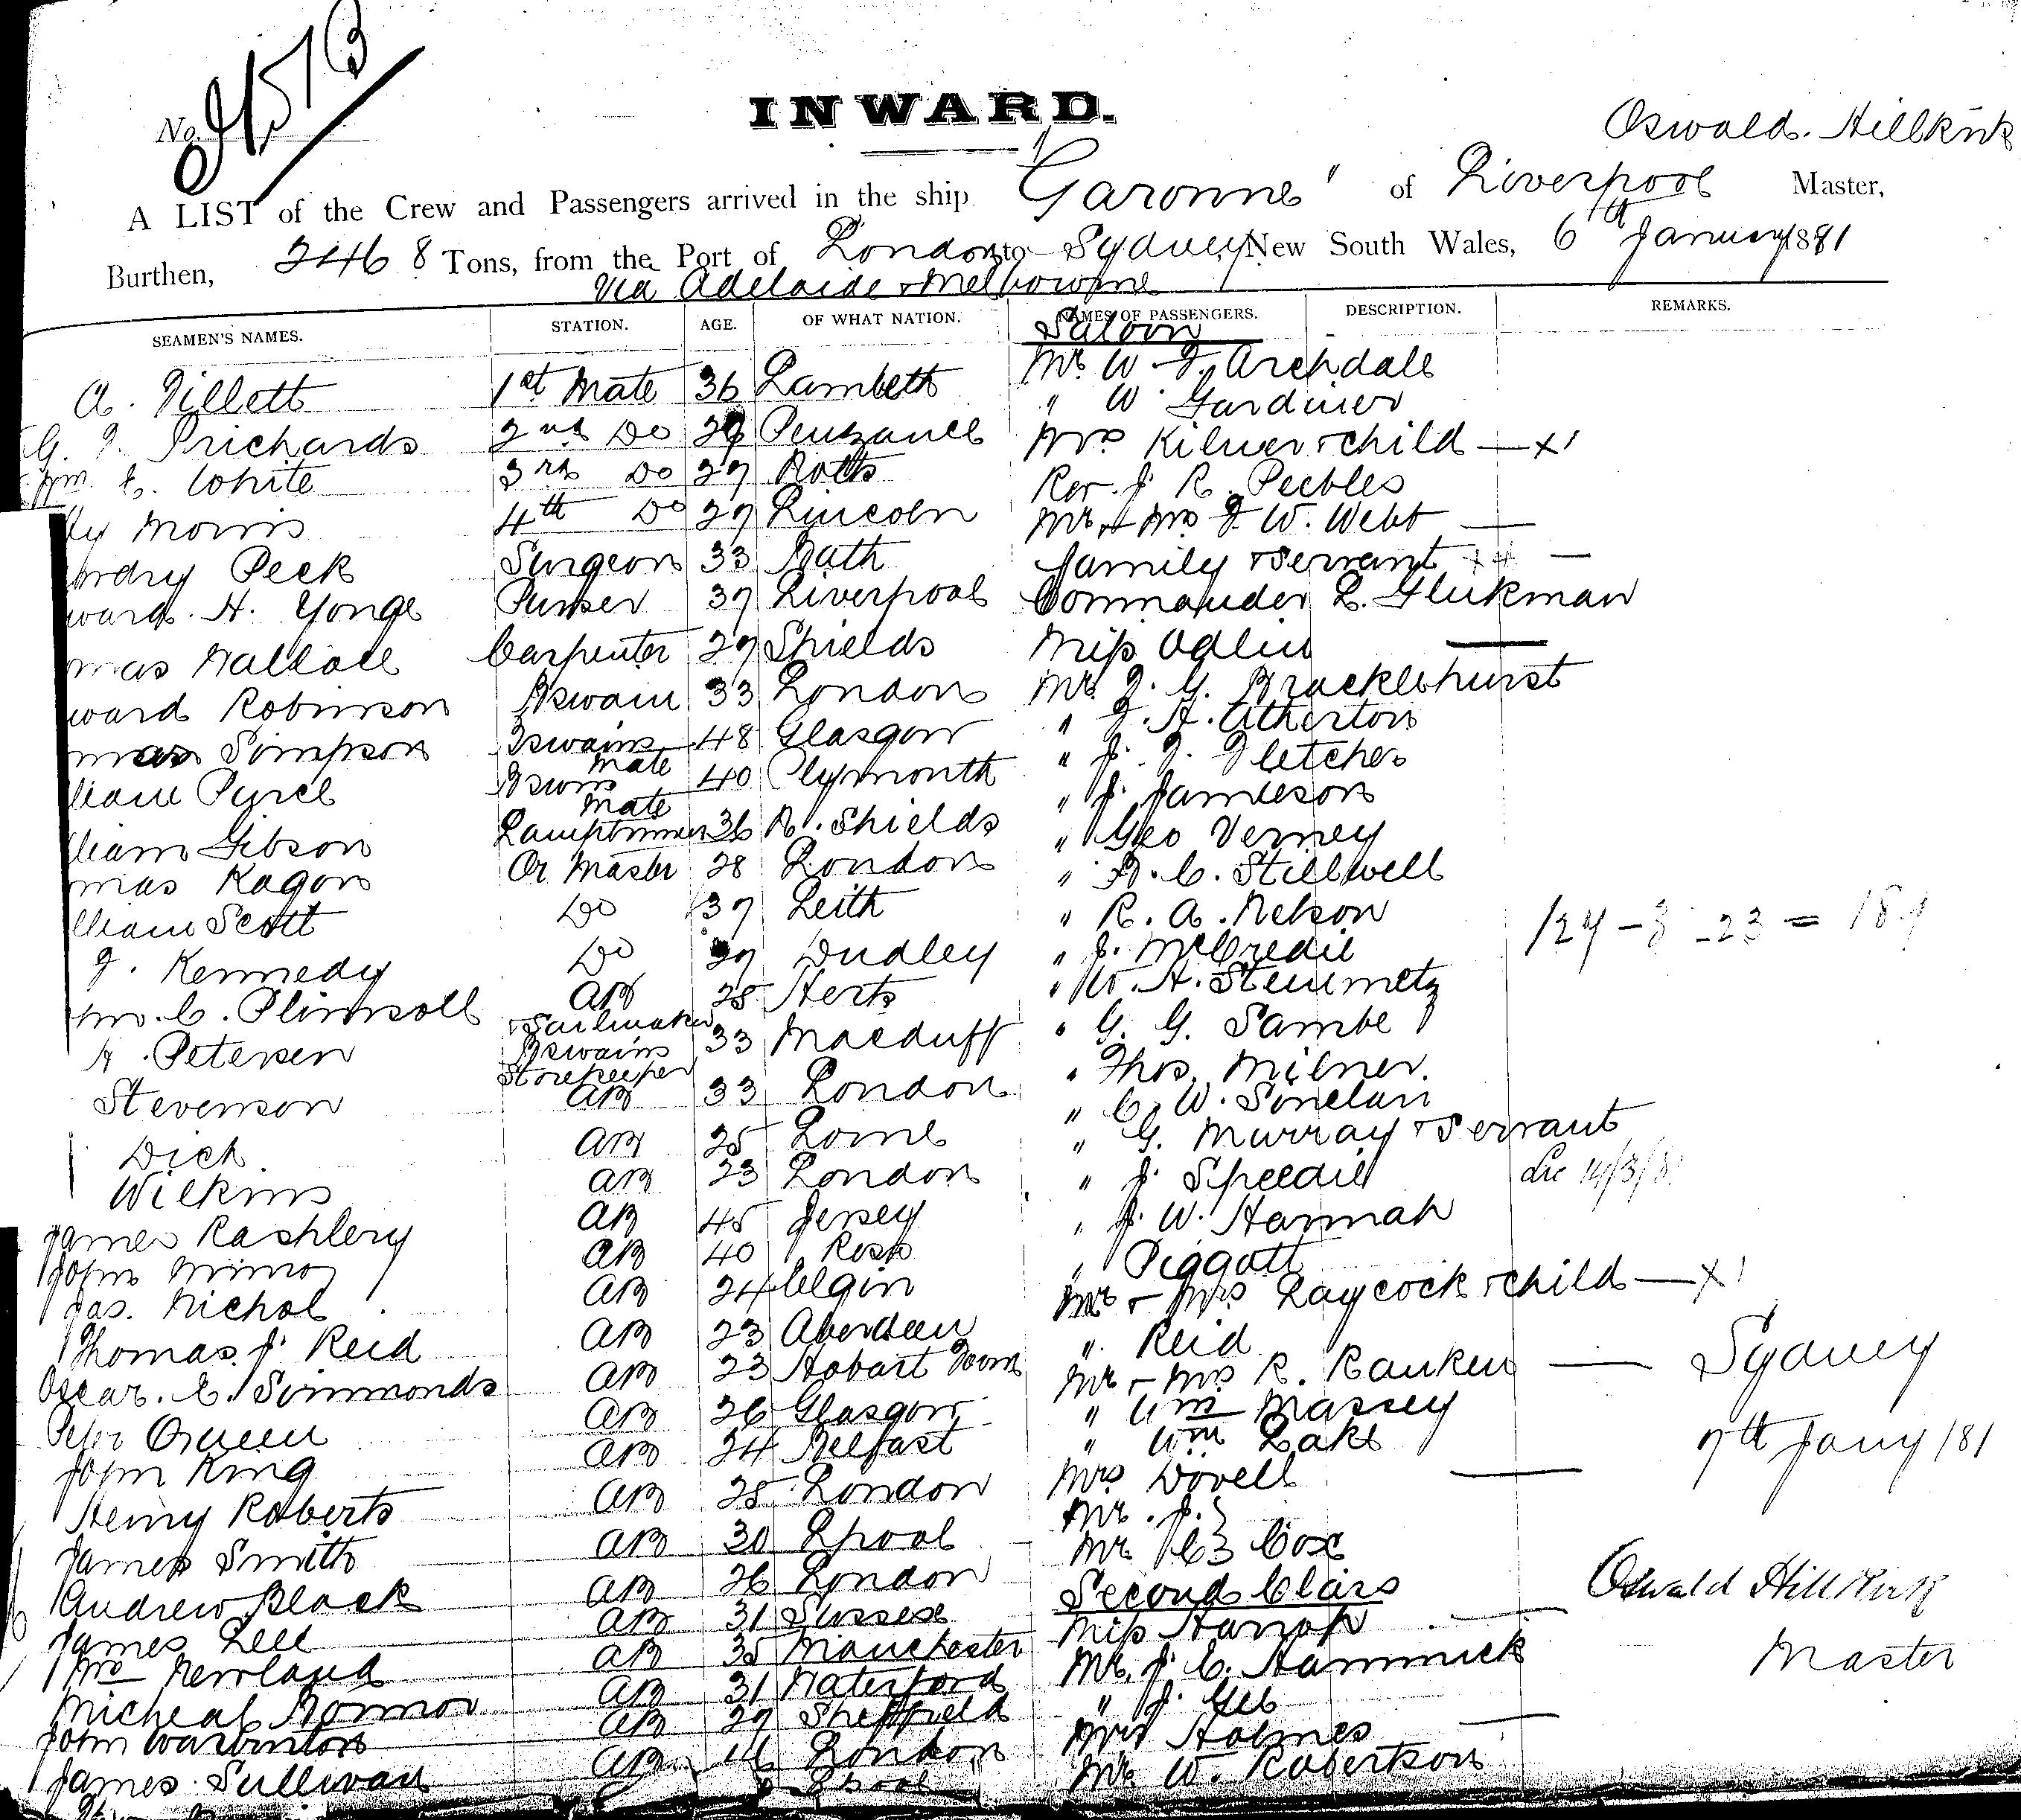 No.
INWARD.
Oswald. Hillkirk
A LIST of the Crew and Passengers arrived in the ship "Garonne" of Liverpool Master,
Burthen, 2468 Tons, from the Port of London to Sydney, New South Wales, 6th January 1881
via Adelaide & Melbourne
SEAMEN'S NAMES. STATION. AGE. OF WHAT NATION. NAMES OF PASSENGERS. DESCRIPTION. REMARKS.
Saloon
A. Tillett 1st Mate 36 Lambeth Mr W. F. Archdall
" W. Gardiner
G. F. Prichards 2nd Do 29 Penzance Mrs Kilner & child — x1
Wm. E. White 3rd Do 27 Rev. J. R. Peebles
Morris 4th Do 27 Lincoln Mr & Mrs F W. Webb —
Peck Surgeon 33 Bath family & servant —
ward. H. Yonge Purser 37 Liverpool Commander L. Glukman
mas Wallace Carpenter 27 Shields Miss Odlin —
ward Robinson Bswain 33 London Mr. J. G. Bracklehurst
mas Simpson Bswains Mate 48 Glasgow " J. H. Atherton
" J. F. Fletcher
liam Bswns Mate 40 Plymouth " J. Jamieson
lliam Gibson Lamptrimmer 36 N. Shields " Geo Verney
mas Ragon Qr Master 28 London " F. C. Stillwell
lliam Scott Do 37 Leith " R. A. Nelson
J. Kennedy Do 27 Dudley " J. McCredie
Wm. C. Plimsoll AB & Sailmaker 28 Herts " W. H. Steinmetz
H. Petersen Bswains Storekeeper 33 Macduff " G. G. Sambe
" Thos. Milner.
Stevenson AB 33 London " C. W. Sinclair
Dick AB 25 Lorne " G. Murray & servant
Wilkins AB 23 London " J. Speedie
James Rashlery AB 45 Jersey " J. W. Hannah
John AB 40 Ross " Piggott
Jas. Nichol AB 24 Elgin Mr & Mrs Laycock & child — x1
Thomas J. Reid AB 23 Aberdeen " Reid
Oscar. E. Simmonds AB 23 Hobart Town Mr & Mrs R. Ranken — Sydney
Peter Queen AB 26 Glasgow " Wm Massey
John King AB 24 Belfast " Wm Lake 7th Jany /81
Henry Roberts AB 25 London Mrs Dovell —
Mr. J. }
James Smith AB 30 Lpool Mr C } Cox
Andrew Black AB 26 London Second Class Oswald Hillkirk
James Lee AB 31 Sussex Miss Harrop — Master
Wm Newland AB 35 Manchester Mr. J. C. Hammick
Micheal Connor AB 31 Waterford " J. Gee
John Warburton AB 27 Sheffield Mrs Holmes —
James Sullivan AB London Mr W. Robertson